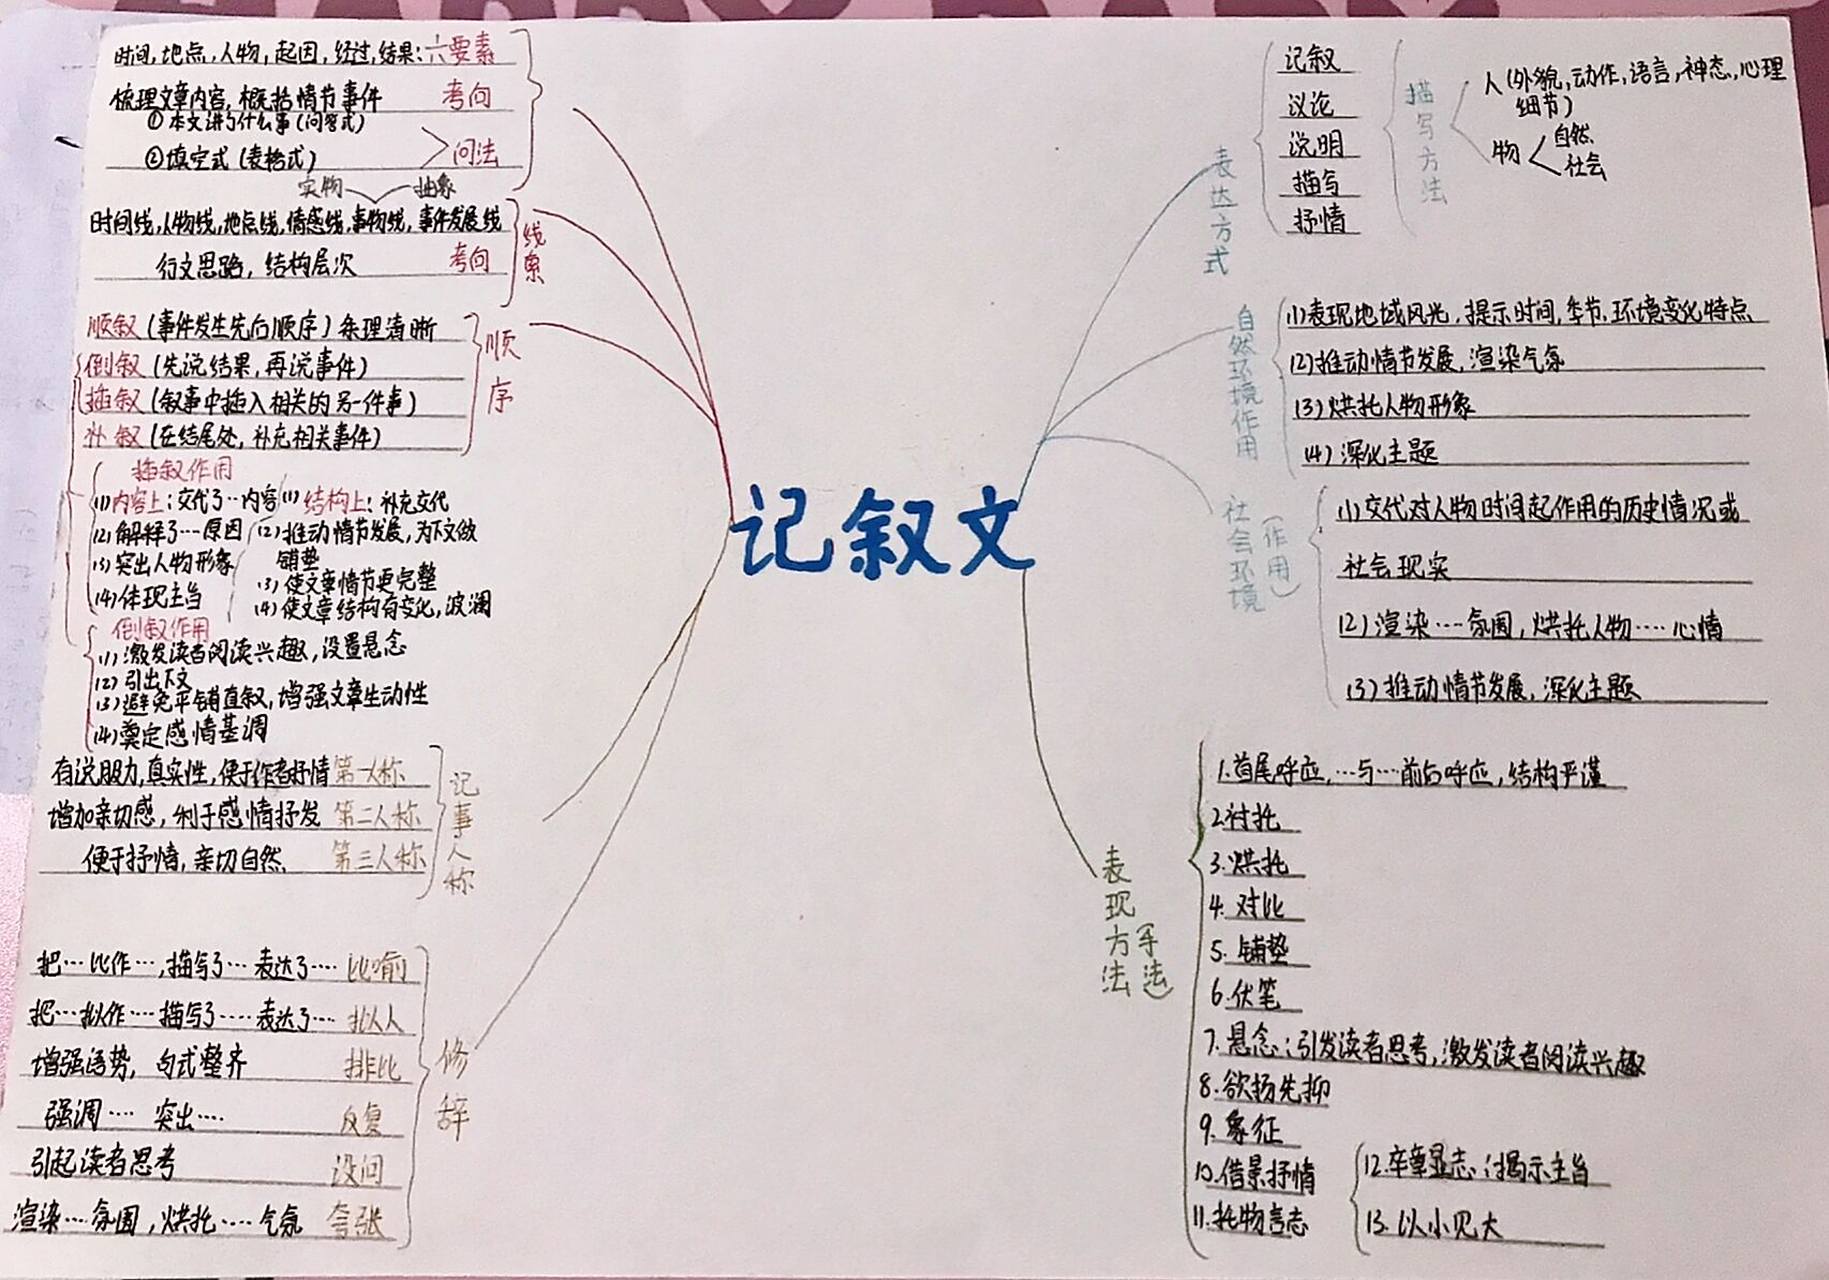 记叙文
时间,地点,人物,起因,经过,结果:六要素
梳理文章内容,概括情节事件 考向
①本文讲了什么事(问答式)
②填空式(表格式)
问法
实物 抽象
时间线,人物线,地点线,情感线,事物线,事件发展线
行文思路,结构层次 考向
线索
顺叙(事件发生先后顺序)条理清晰
倒叙(先说结果,再说事件)
插叙(叙事中插入相关的另一件事)
补叙(在结尾处,补充相关事件)
顺序
插叙作用
(1)内容上:交代了…内容
(2)解释了…原因
(3)突出人物形象
(4)体现主旨
(1)结构上:补充交代
(2)推动情节发展,为下文做
铺垫
(3)使文章情节更完整
(4)使文章结构有变化,波澜
倒叙作用
(1)激发读者阅读兴趣,设置悬念
(2)引出下文
(3)避免平铺直叙,增强文章生动性
(4)奠定感情基调
有说服力,真实性,便于作者抒情 第一人称
增加亲切感,利于感情抒发 第二人称
便于抒情,亲切自然 第三人称
记事人称
把…比作…,描写了…表达了…. 比喻
把…拟作…描写了….表达了…. 拟人
增强语势,句式整齐 排比
强调…. 突出…. 反复
引起读者思考 设问
渲染….氛围,烘托….气氛 夸张
修辞
表达方式
记叙
议论
说明
描写
抒情
描写方法
人(外貌,动作,语言,神态,心理
细节)
物
自然
社会
自然环境作用
(1)表现地域风光,提示时间,季节,环境变化特点
(2)推动情节发展,渲染气氛
(3)烘托人物形象
(4)深化主题
社会环境(作用)
(1)交代对人物时间起作用的历史情况或
社会现实
(2)渲染….氛围,烘托人物….心情
(3)推动情节发展,深化主题
表现方法(手法)
1.首尾呼应,…与…前后呼应,结构严谨
2.衬托
3.烘托
4.对比
5.铺垫
6.伏笔
7.悬念:引发读者思考,激发读者阅读兴趣
8.欲扬先抑
9.象征
10.借景抒情
11.托物言志
12.卒章显志:揭示主旨
13.以小见大